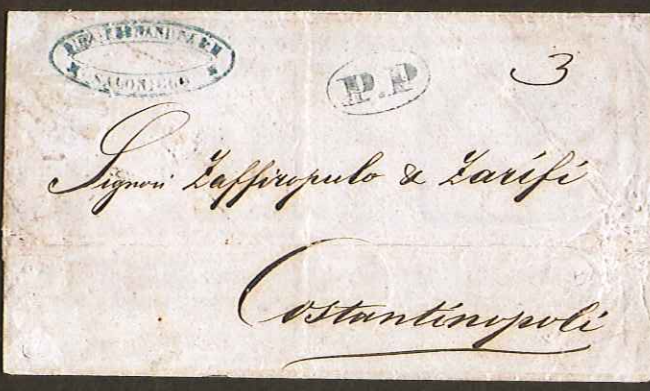 SALONICCO
P.P
3
Signori Zaffiropulo & Zarifi
Costantinopoli